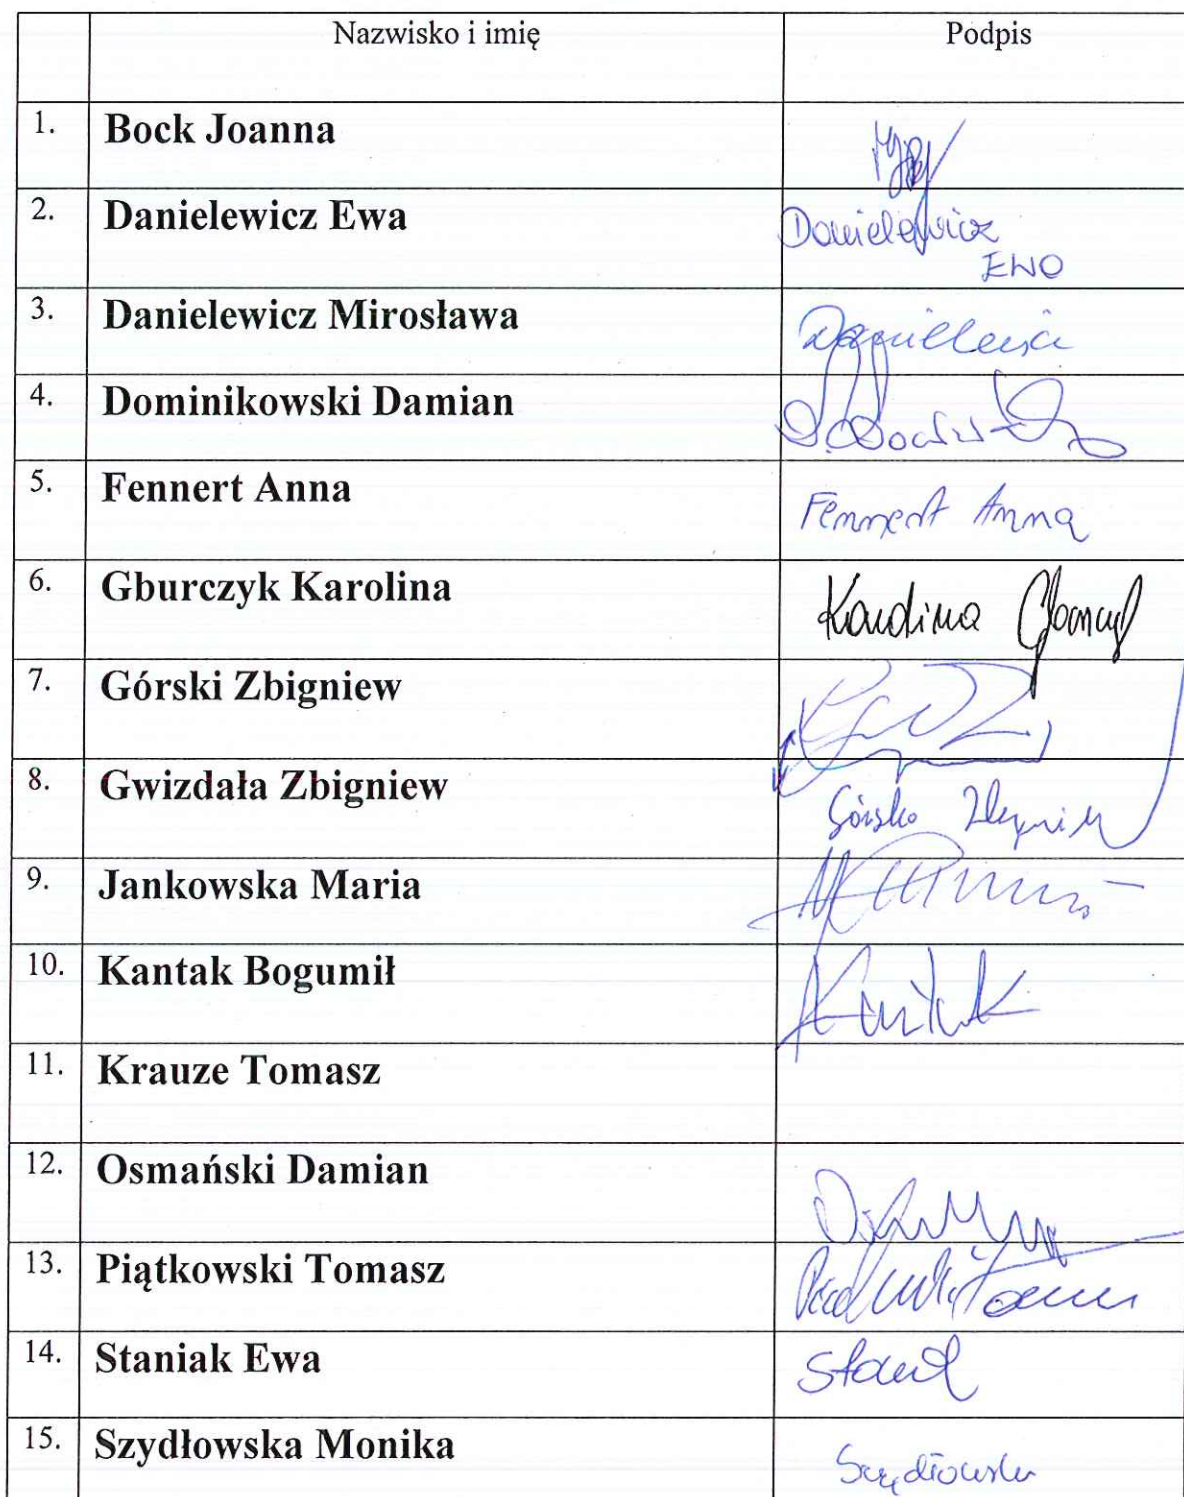 Nazwisko i imię Podpis
1. Bock Joanna
2. Danielewicz Ewa Danielewicz
Ewa
3. Danielewicz Mirosława
4. Dominikowski Damian
5. Fennert Anna Fennert Anna
6. Gburczyk Karolina Karolina
7. Górski Zbigniew
8. Gwizdała Zbigniew
9. Jankowska Maria
10. Kantak Bogumił Kantak
11. Krauze Tomasz
12. Osmański Damian
13. Piątkowski Tomasz
14. Staniak Ewa
15. Szydłowska Monika Szydłowska